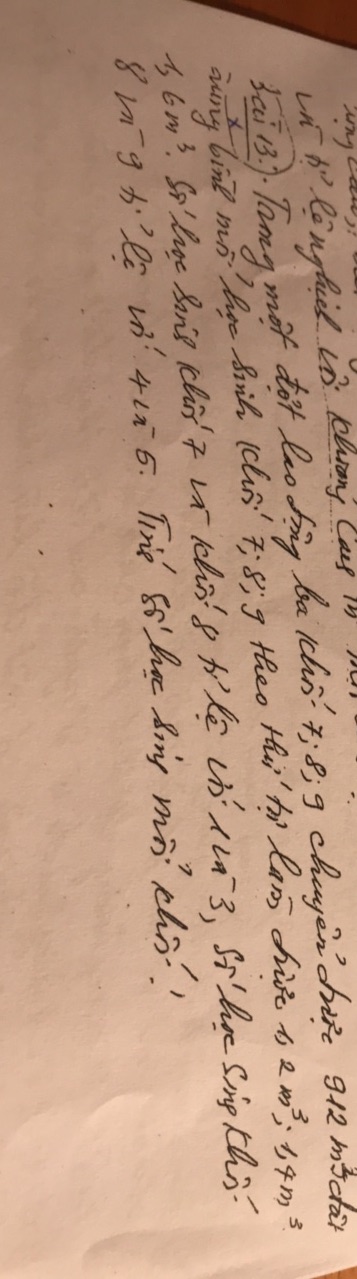 và tỉ lệ nghịch với
Bài 13: Trong một đợt lao động ba khối 7; 8; 9 chuyển được 912 m³ đất
trung bình mỗi học sinh khối 7; 8; 9 theo thứ tự làm được 1,2 m³; 1,4 m³
1,6 m³. Số học sinh khối 7 và khối 8 tỉ lệ với 1 và 3, số học sinh khối
8 và 9 tỉ lệ với 4 và 5. Tính số học sinh mỗi khối!